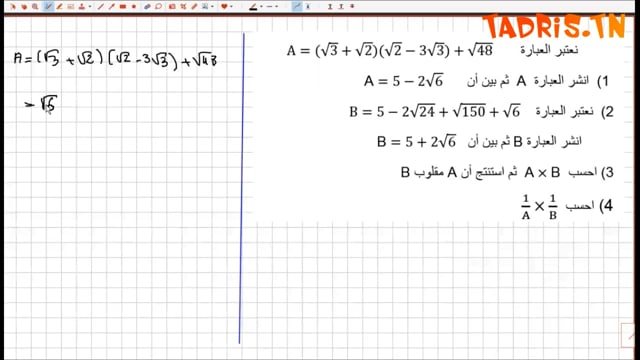 TADRIS.TN
A = (√3 + √2) (√2 - 3√3) + √48
= √6
نعتبر العبارة A = (√3 + √2)(√2 − 3√3) + √48
1) انشر العبارة A ثم بين أن A = 5 − 2√6
2) نعتبر العبارة B = 5 − 2√24 + √150 + √6
انشر العبارة B ثم بين أن B = 5 + 2√6
3) احسب A × B ثم استنتج أن A مقلوب B
4) احسب 1/A × 1/B